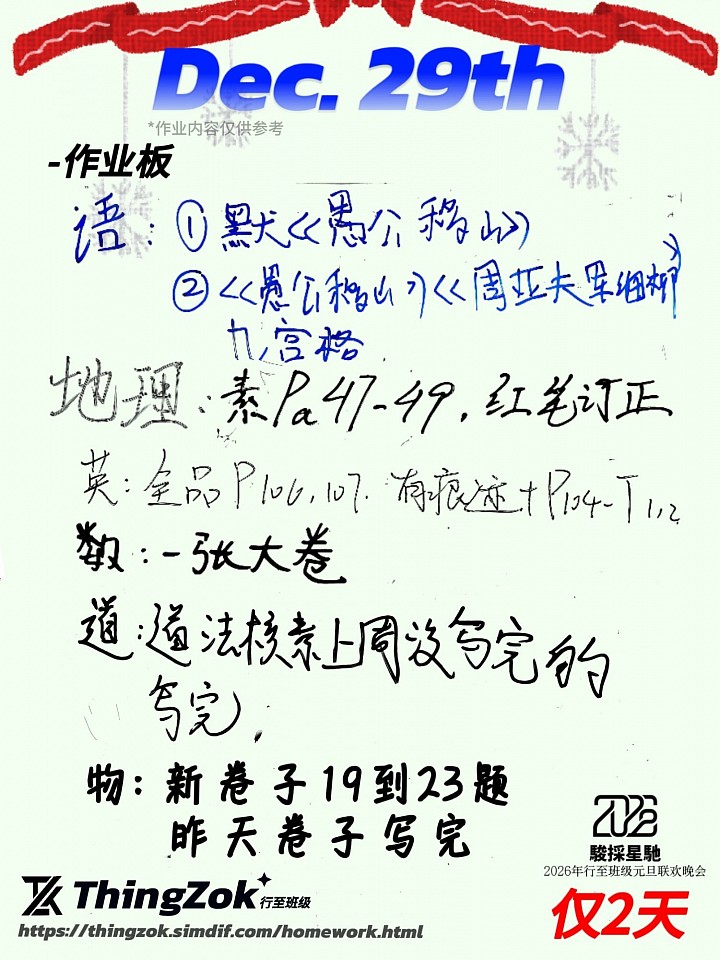 Dec. 29th
*作业内容仅供参考
-作业板
语：①默《愚公移山》
②《愚公移山》《周亚夫军细柳》
九宫格
地理：素Pa47-49，红笔订正
英：全品P106,107. 有痕迹+P104-T1,2
数：一张大卷
道：道法核素上周没写完的
写完，
物：新卷子19到23题
昨天卷子写完
2026
駿採星馳
2026年行至班级元旦联欢晚会
ThingZok 行至班级
仅2天
https://thingzok.simdif.com/homework.html